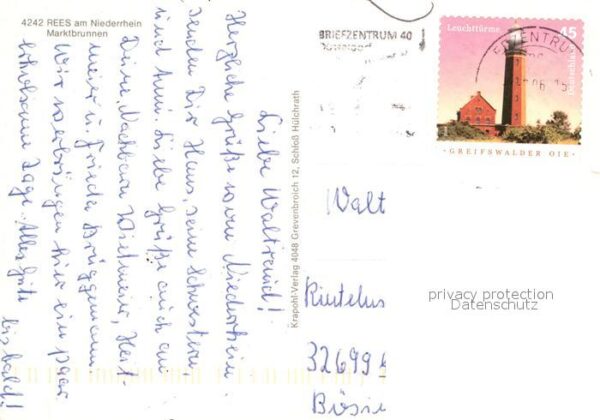 4242 REES am Niederrhein
Marktbrunnen
Liebe Waltraud!
Herzliche Grüße vom Niederrhein
senden Dir Hans, seine Schwestern
und Anni. Liebe Grüße auch an
Deine Nachbarn
meier u. Frieda Brüggemann
Wir verbringen hier ein paar
erholsame Tage. Alles Gute
bis bald!
Krapohl-Verlag 4048 Grevenbroich 12, Schloß Hülchrath
BRIEFZENTRUM 40
Leuchttürme 45
GREIFSWALDER OIE
Walt
32699
privacy protection
Datenschutz